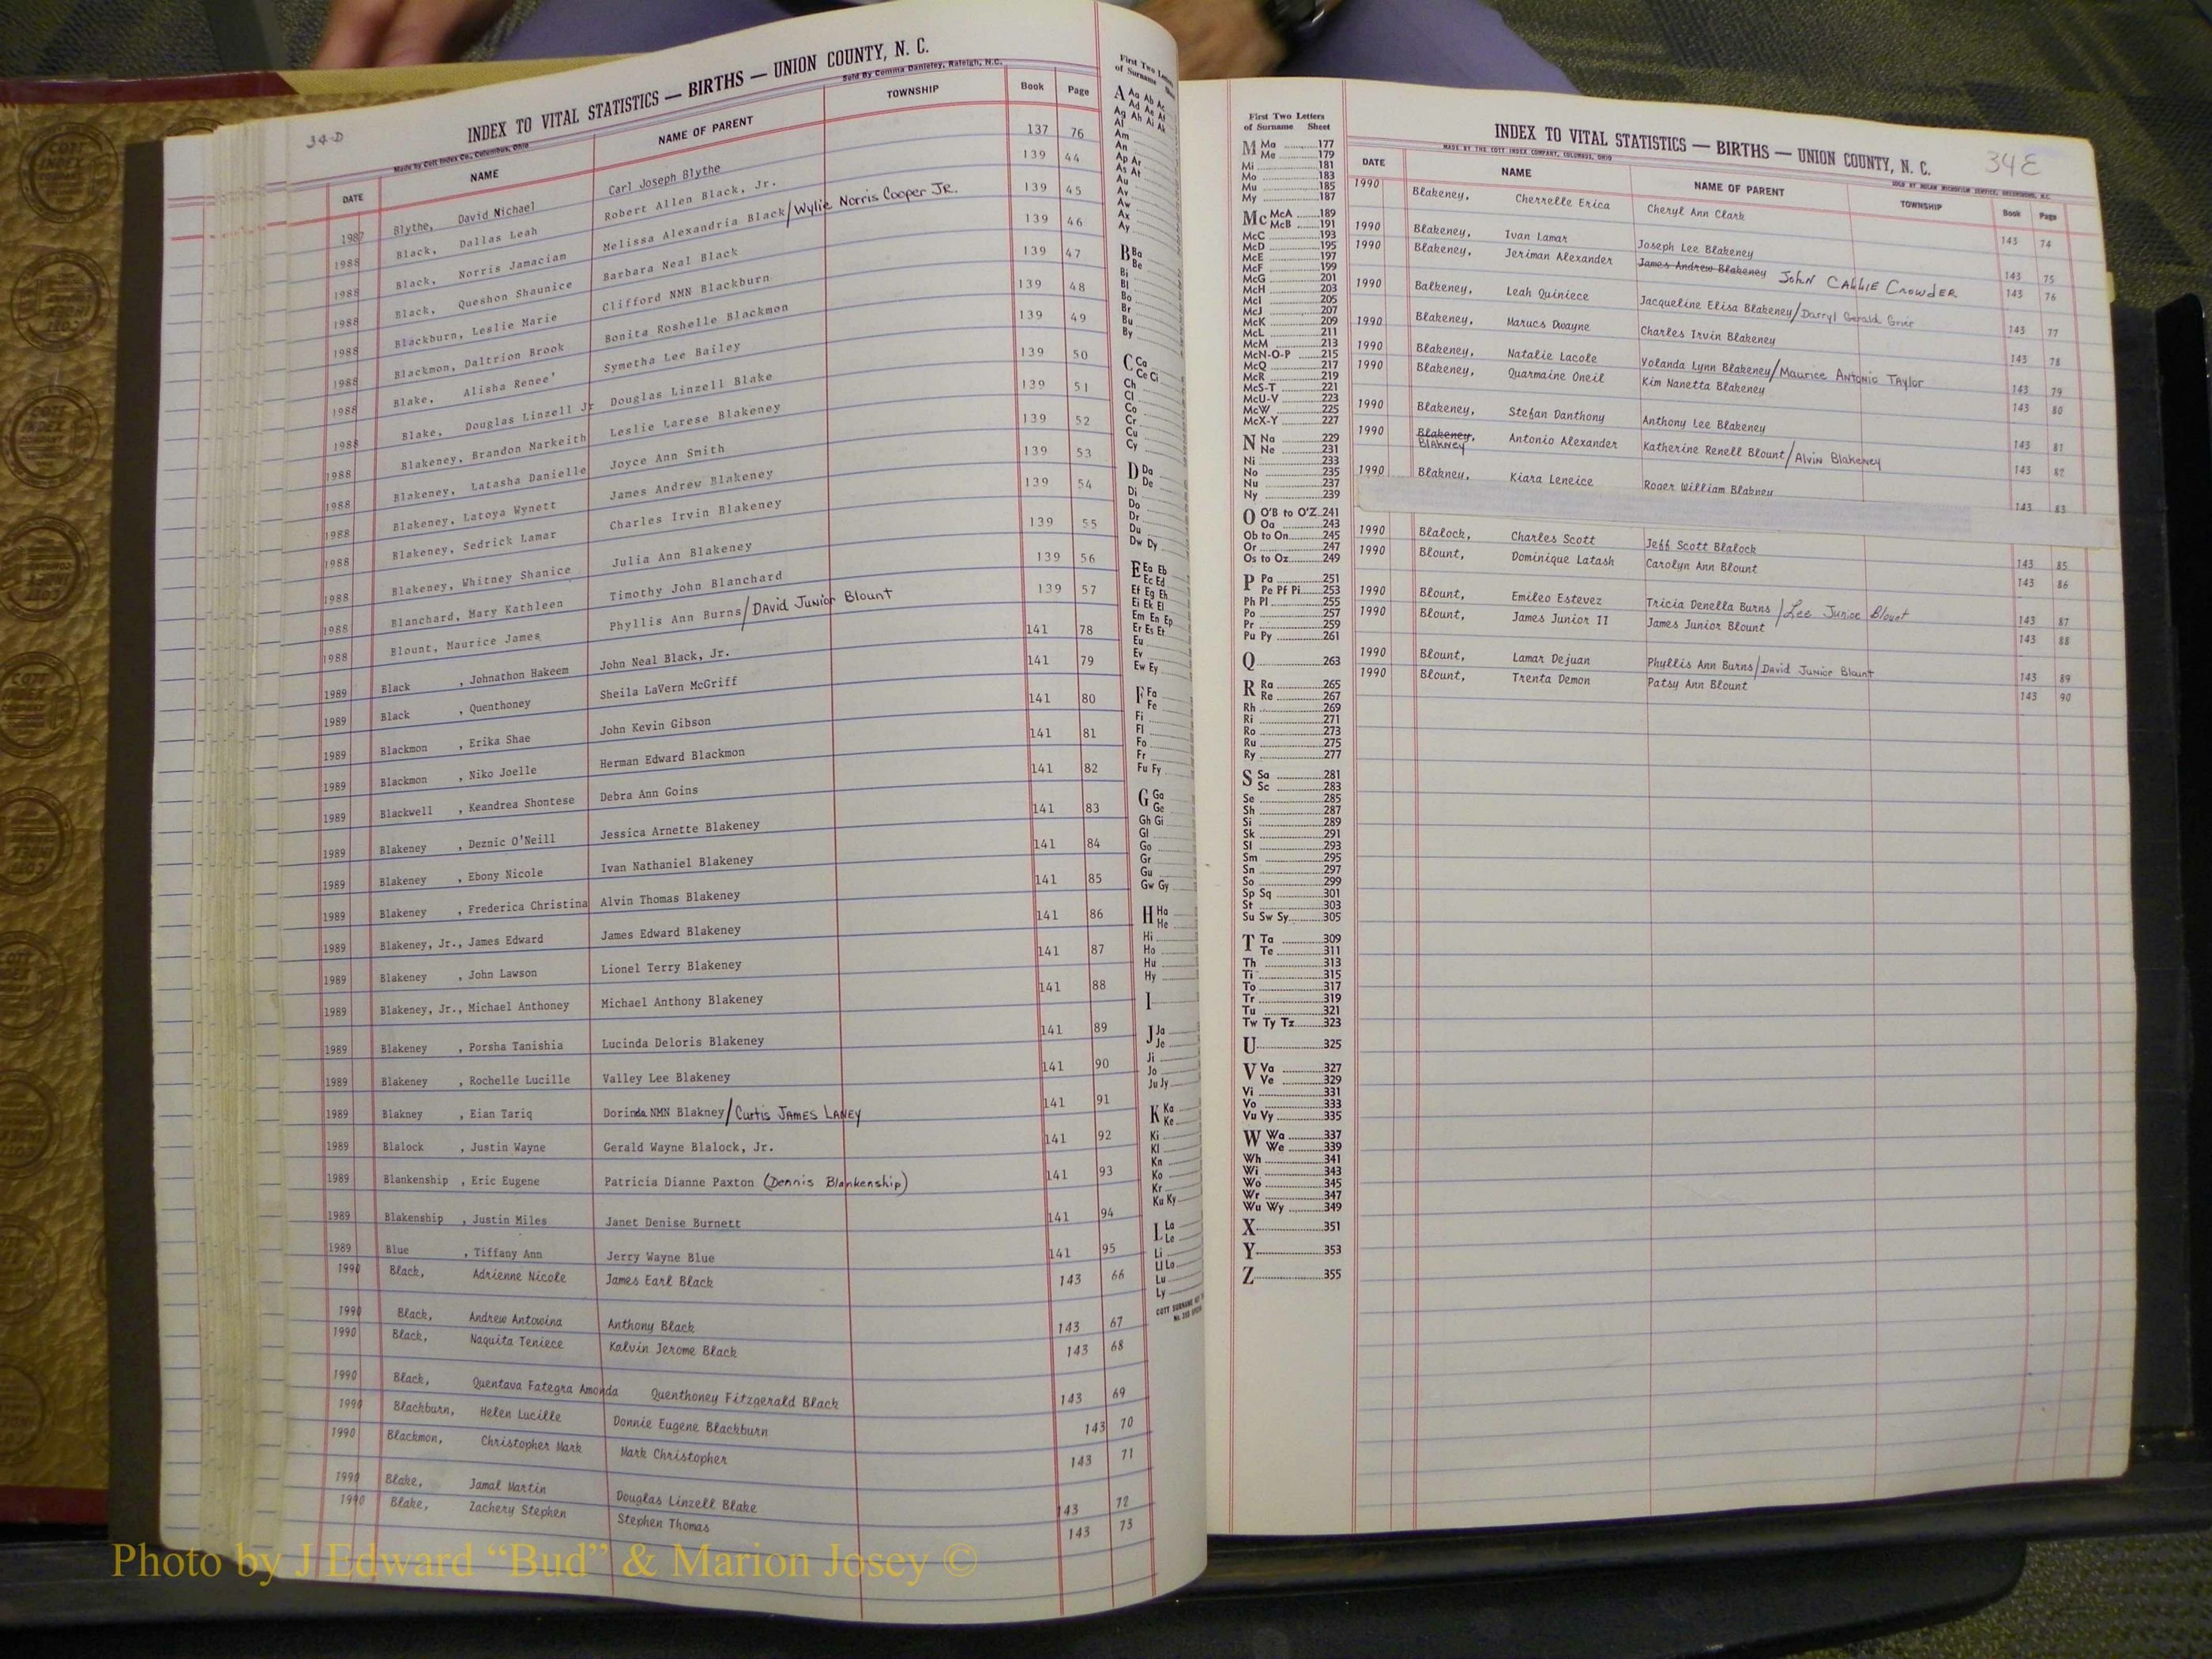 34-D
INDEX TO VITAL STATISTICS — BIRTHS — UNION COUNTY, N. C.
Made by Cott Index Co., Columbus, Ohio
Sold By Comma Danieley, Raleigh, N.C.
DATE NAME NAME OF PARENT TOWNSHIP Book Page
1987 Blythe, David Michael Carl Joseph Blythe 137 76
1988 Black, Dallas Leah Robert Allen Black, Jr. 139 44
1988 Black, Norris Jamaciam Melissa Alexandria Black/Wylie Norris Cooper Jr. 139 45
1988 Black, Queshon Shaunice Barbara Neal Black 139 46
1988 Blackburn, Leslie Marie Clifford NMN Blackburn 139 47
1988 Blackmon, Daltrion Brook Bonita Roshelle Blackmon 139 48
1988 Blake, Alisha Renee' Symetha Lee Bailey 139 49
1988 Blake, Douglas Linzell Jr Douglas Linzell Blake 139 50
1988 Blakeney, Brandon Markeith Leslie Larese Blakeney 139 51
1988 Blakeney, Latasha Danielle Joyce Ann Smith 139 52
1988 Blakeney, Latoya Wynett James Andrew Blakeney 139 53
1988 Blakeney, Sedrick Lamar Charles Irvin Blakeney 139 54
1988 Blakeney, Whitney Shanice Julia Ann Blakeney 139 55
1988 Blanchard, Mary Kathleen Timothy John Blanchard 139 56
1988 Blount, Maurice James Phyllis Ann Burns/David Junior Blount 139 57
1989 Black , Johnathon Hakeem John Neal Black, Jr. 141 78
1989 Black , Quenthoney Sheila LaVern McGriff 141 79
1989 Blackmon , Erika Shae John Kevin Gibson 141 80
1989 Blackmon , Niko Joelle Herman Edward Blackmon 141 81
1989 Blackwell , Keandrea Shontese Debra Ann Goins 141 82
1989 Blakeney , Deznic O'Neill Jessica Arnette Blakeney 141 83
1989 Blakeney , Ebony Nicole Ivan Nathaniel Blakeney 141 84
1989 Blakeney , Frederica Christina Alvin Thomas Blakeney 141 85
1989 Blakeney, Jr., James Edward James Edward Blakeney 141 86
1989 Blakeney , John Lawson Lionel Terry Blakeney 141 87
1989 Blakeney, Jr., Michael Anthoney Michael Anthony Blakeney 141 88
1989 Blakeney , Porsha Tanishia Lucinda Deloris Blakeney 141 89
1989 Blakeney , Rochelle Lucille Valley Lee Blakeney 141 90
1989 Blakney , Eian Tariq Dorinda NMN Blakney/Curtis James Laney 141 91
1989 Blalock , Justin Wayne Gerald Wayne Blalock, Jr. 141 92
1989 Blankenship , Eric Eugene Patricia Dianne Paxton (Dennis Blankenship) 141 93
1989 Blakenship , Justin Miles Janet Denise Burnett 141 94
1989 Blue , Tiffany Ann Jerry Wayne Blue 141 95
1990 Black, Adrienne Nicole James Earl Black 143 66
1990 Black, Andrew Antowina Anthony Black 143 67
1990 Black, Naquita Teniece Kalvin Jerome Black 143 68
1990 Black, Quentava Fategra Amonda Quenthoney Fitzgerald Black 143 69
1990 Blackburn, Helen Lucille Donnie Eugene Blackburn 143 70
1990 Blackmon, Christopher Mark Mark Christopher 143 71
1990 Blake, Jamal Martin Douglas Linzell Blake 143 72
1990 Blake, Zachery Stephen Stephen Thomas 143 73
First Two Letters
of Surname
A Aa Ab Ac
Ad Ae Af
Ag Ah Ai Ak
Al
Am
An
Ap Ar
As At
Au
Av
Aw
Ax
Ay
B Ba
Be
Bi
Bl
Bo
Br
Bu
By
C Ca
Ce Ci
Ch
Cl
Co
Cr
Cu
Cy
D Da
De
Di
Do
Dr
Du
Dw Dy
E Ea Eb
Ec Ed
Ef Eg Eh
Ei Ek El
Em En Ep
Er Es Et
Eu
Ev
Ew Ey
F Fa
Fe
Fi
Fl
Fo
Fr
Fu Fy
G Ga
Ge
Gh Gi
Gl
Go
Gr
Gu
Gw Gy
H Ha
He
Hi
Ho
Hu
Hy
I
J Ja
Je
Ji
Jo
Ju Jy
K Ka
Ke
Ki
Kl
Kn
Ko
Kr
Ku Ky
L La
Le
Li
Ll Lo
Lu
Ly
First Two Letters
of Surname Sheet
M Ma 177
Me 179
Mi 181
Mo 183
Mu 185
My 187
Mc McA 189
McB 191
McC 193
McD 195
McE 197
McF 199
McG 201
McH 203
McI 205
McJ 207
McK 209
McL 211
McM 213
McN-O-P 215
McQ 217
McR 219
McS-T 221
McU-V 223
McW 225
McX-Y 227
N Na 229
Ne 231
Ni 233
No 235
Nu 237
Ny 239
O O'B to O'Z 241
Oa 243
Ob to On 245
Or 247
Os to Oz 249
P Pa 251
Pe Pf Pi 253
Ph Pl 255
Po 257
Pr 259
Pu Py 261
Q 263
R Ra 265
Re 267
Rh 269
Ri 271
Ro 273
Ru 275
Ry 277
S Sa 281
Sc 283
Se 285
Sh 287
Si 289
Sk 291
Sl 293
Sm 295
Sn 297
So 299
Sp Sq 301
St 303
Su Sw Sy 305
T Ta 309
Te 311
Th 313
Ti 315
To 317
Tr 319
Tu 321
Tw Ty Tz 323
U 325
V Va 327
Ve 329
Vi 331
Vo 333
Vu Vy 335
W Wa 337
We 339
Wh 341
Wi 343
Wo 345
Wr 347
Wu Wy 349
X 351
Y 353
Z 355
INDEX TO VITAL STATISTICS — BIRTHS — UNION COUNTY, N. C. 34E
MADE BY THE COTT INDEX COMPANY, COLUMBUS, OHIO
SOLD BY NOLAN MICROFILM SERVICE, GREENSBORO, N.C.
DATE NAME NAME OF PARENT TOWNSHIP Book Page
1990 Blakeney, Cherrelle Erica Cheryl Ann Clark 143 74
1990 Blakeney, Ivan Lamar Joseph Lee Blakeney 143 75
1990 Blakeney, Jeriman Alexander James Andrew Blakeney John Callie Crowder 143 76
1990 Balkeney, Leah Quiniece Jacqueline Elisa Blakeney/Darryl Gerald Grier 143 77
1990 Blakeney, Marucs Dwayne Charles Irvin Blakeney 143 78
1990 Blakeney, Natalie Lacole Yolanda Lynn Blakeney/Maurice Antonio Taylor 143 79
1990 Blakeney, Quarmaine Oneil Kim Nanetta Blakeney 143 80
1990 Blakeney, Stefan Danthony Anthony Lee Blakeney 143 81
1990 Blakeney, Antonio Alexander Katherine Renell Blount/Alvin Blakeney 143 82
Blakney
1990 Blakney, Kiara Leneice Roger William Blakney 143 83
1990 Blalock, Charles Scott Jeff Scott Blalock 143 85
1990 Blount, Dominique Latash Carolyn Ann Blount 143 86
1990 Blount, Emileo Estevez Tricia Denella Burns /Lee Junior Blount 143 87
1990 Blount, James Junior II James Junior Blount 143 88
1990 Blount, Lamar Dejuan Phyllis Ann Burns/David Junior Blount 143 89
1990 Blount, Trenta Demon Patsy Ann Blount 143 90
COTT INDEX COMPANY
Photo by J Edward “Bud” & Marion Josey ©